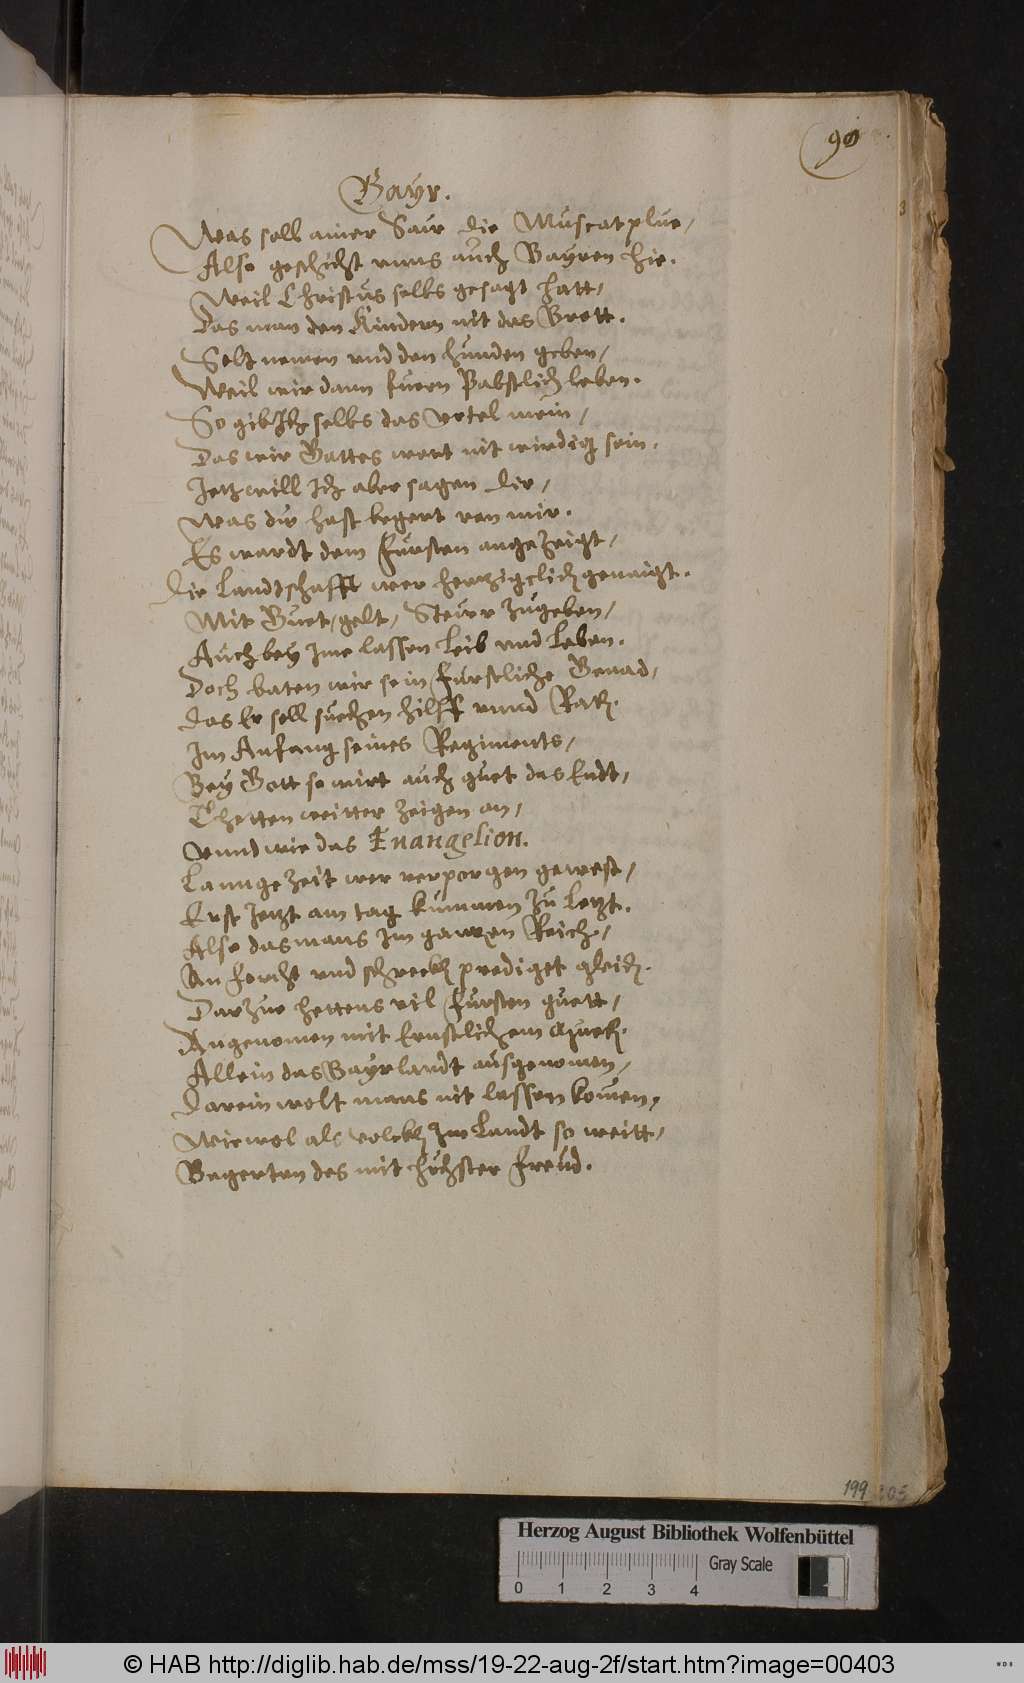 90
Bayr.
Was soll ainer Saw die Muscatplue,
Also geschicht unns auch Bayren hie.
Weil Christus selbs gesagt hatt,
Das man den Kindern nit das Brott.
Solt nemen und den hunden geben,
Weil wir dann furn Pabstlich leben.
So gib Ich selbs das Urtel mein,
Das wir Gottes wort nit wirdig sein.
Jetz will Ich aber sagen dir,
Was du hast begert von mir.
Es wardt dem Fürsten angezeigt,
Die Landtschafft wer hertzigelich genaigt.
Mit Guet, gelt, Steur zugeben,
Auch bey Ime lassen Leib und Leben.
Doch baten wir sein Furstliche Genad,
das Er soll suechen hilff unnd Rath.
Im Anfang seines Regiments,
Bey Gott so wirt auch guet das Endt,
Thetten weitter zeigen an,
Unnd wie das Euangelion.
Lannge zeit wer verporgen gewest,
Erst Jetzt am tag kummen zu Letzt.
Also das mans Im ganzen Reich,
An forcht und schreckh prediget gleich.
Darzue hettens vil Fursten guett,
Angenomen mit Ernstlichem
Allein das Bayrlandt ausgenomen,
Darein wolt mans nit lassen komen,
Wiewol als volckh Im Landt so weitt,
Begerten des mit höchster Freud.
199
Herzog August Bibliothek Wolfenbüttel
Gray Scale
0 1 2 3 4
© HAB http://diglib.hab.de/mss/19-22-aug-2f/start.htm?image=00403